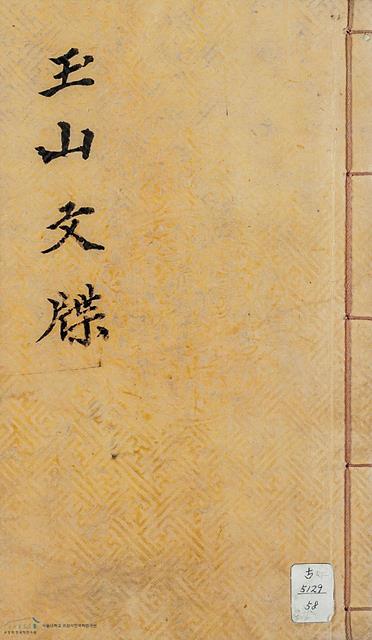 玉山文牒
古
5129
58
서울대학교 규장각한국학연구원